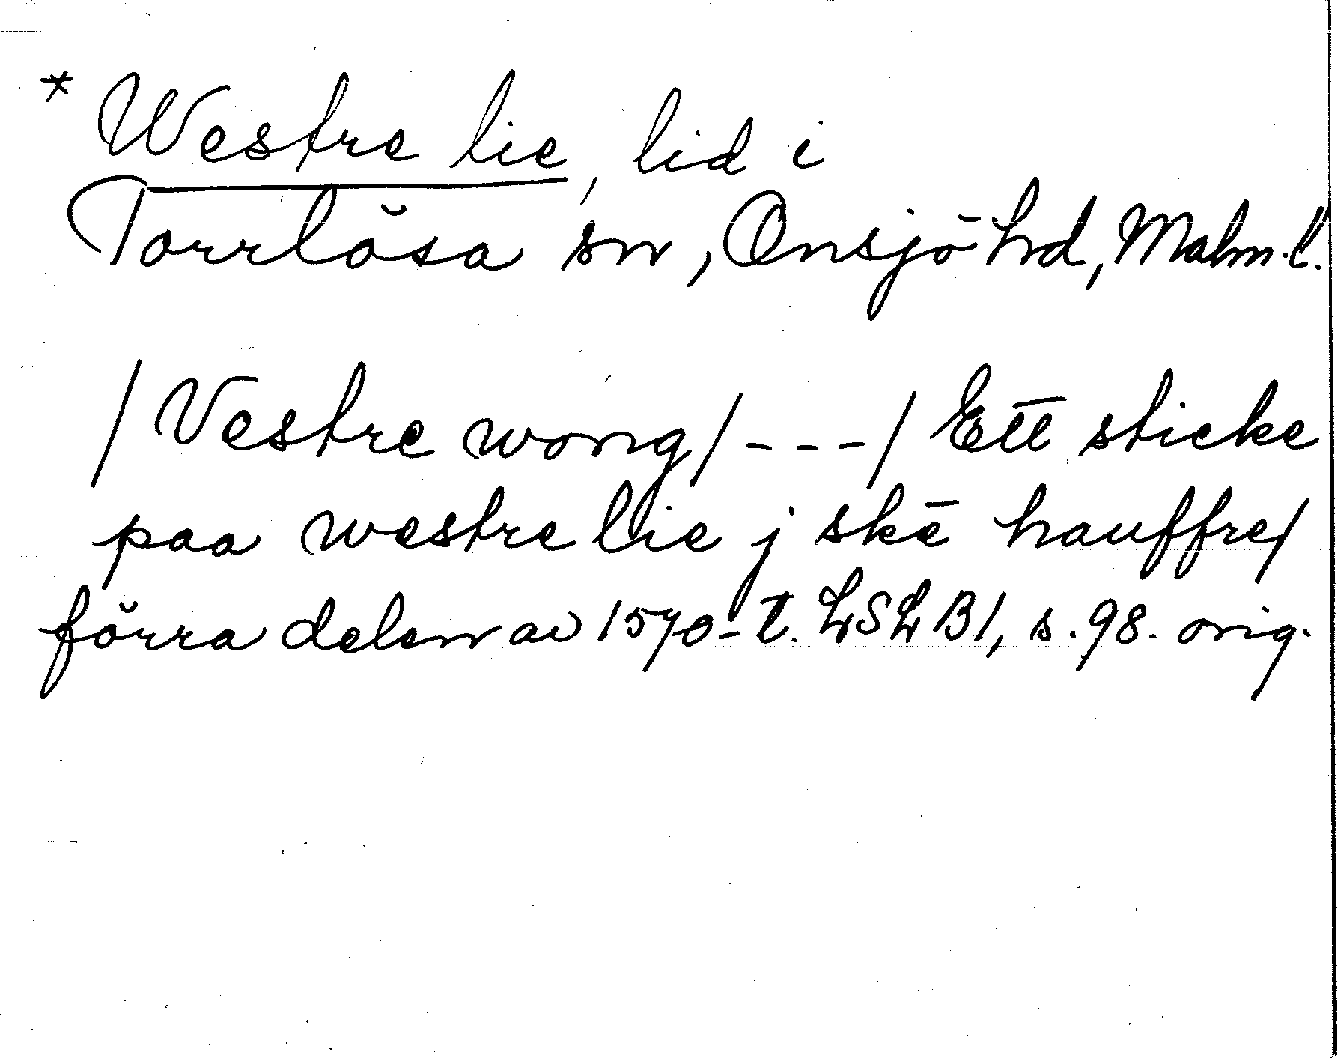 * Westre lie, lid i
Torrlösa sn, Onsjö hd, Malm. l.
/Vestre wong/ - - - / Ett sticke
paa westre lie j skē hauffre/
förra delen av 1570-t. LSLB1, s. 98. orig.